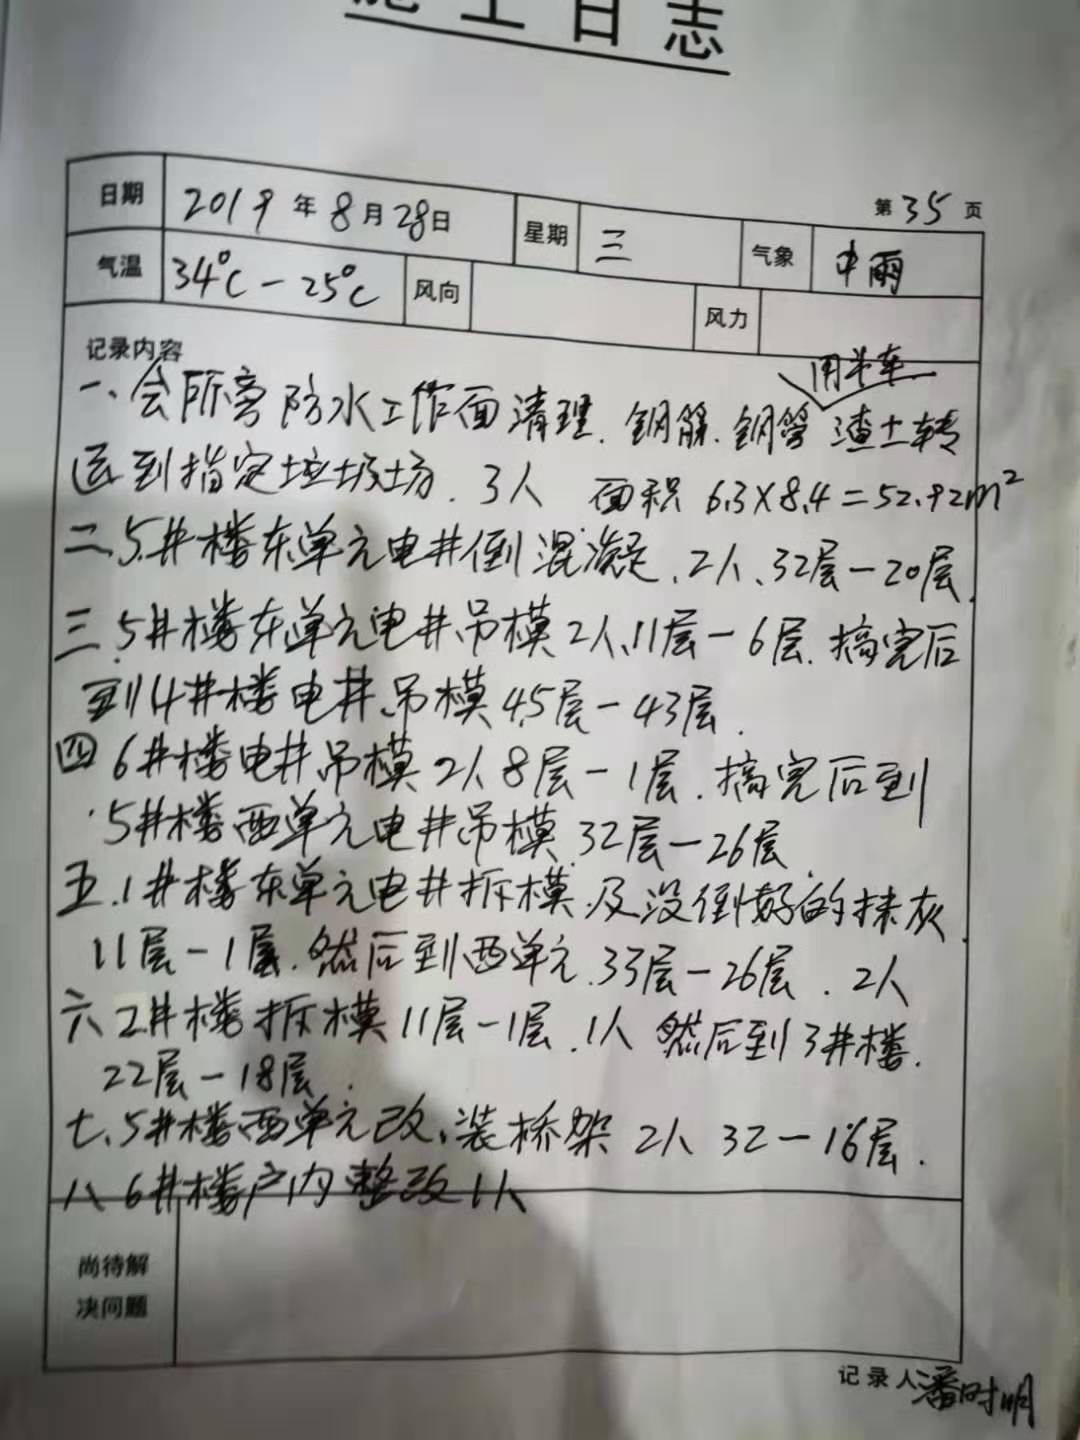 施工日志
第35页
日期 2019年8月28日 星期 三 气象 中雨
气温 34℃-25℃ 风向 风力
记录内容
用吊车
一、会所旁防水工作面清理.钢筋.钢管渣土转
运到指定垃圾场.3人 面积 6.3×8.4=52.92m²
二、5井楼东单元电井倒混凝、2人、32层-20层.
三.5井楼东单元电井吊模2人、11层-6层.搞完后
到4井楼电井吊模45层-43层.
四 6井楼电井吊模2人8层-1层.搞完后到
5井楼西单元电井吊模.32层-26层
五.1井楼东单元电井拆模.及没倒好的抹灰
11层-1层.然后到西单元.33层-26层.2人
六、2井楼拆模11层-1层.1人 然后到3井楼.
22层-18层.
七、5井楼西单元改、装桥架 2人 32-16层.
八 6井楼户内整改1人
尚待解
决问题
记录人潘时明